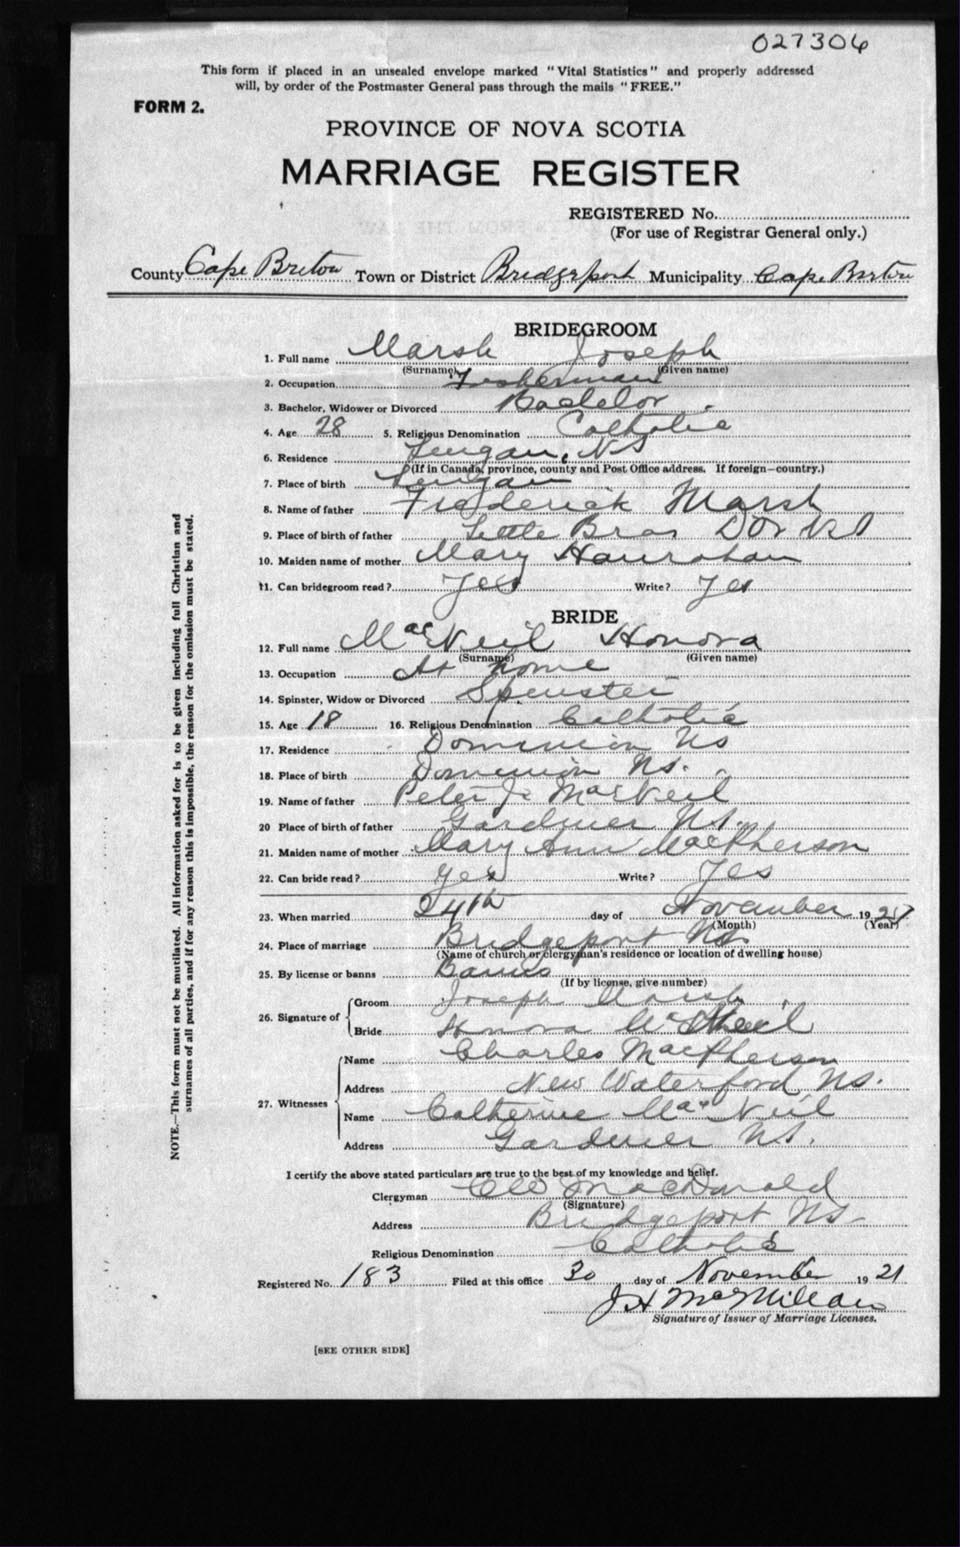 027306
This form if placed in an unsealed envelope marked "Vital Statistics" and properly addressed
will, by order of the Postmaster General pass through the mails "FREE."
FORM 2.
PROVINCE OF NOVA SCOTIA
MARRIAGE REGISTER
REGISTERED No.
(For use of Registrar General only.)
County Cape Breton Town or District Bridgeport Municipality Cape Breton
BRIDEGROOM
1. Full name Marsh Joseph
(Surname) (Given name)
2. Occupation Fisherman
3. Bachelor, Widower or Divorced Bachelor
4. Age 28 5. Religious Denomination Catholic
6. Residence Lingan, NS
(If in Canada, province, county and Post Office address. If foreign—country.)
7. Place of birth Lingan
8. Name of father Frederick Marsh
9. Place of birth of father Little Bras DOr NS
10. Maiden name of mother Mary Hanrahan
11. Can bridegroom read? Yes Write? Yes
BRIDE
12. Full name MacNeil Honora
(Surname) (Given name)
13. Occupation At home
14. Spinster, Widow or Divorced Spinster
15. Age 18 16. Religious Denomination Catholic
17. Residence Dominion NS
18. Place of birth Dominion NS.
19. Name of father Peter J. MacNeil
20 Place of birth of father Gardiner NS.
21. Maiden name of mother Mary Ann MacPherson
22. Can bride read? Yes Write? Yes
23. When married 24th day of November 1921
(Month) (Year)
24. Place of marriage Bridgeport NS
(Name of church or clergyman's residence or location of dwelling house)
25. By license or banns Banns
(If by license, give number)
26. Signature of Groom Joseph Marsh
Bride Honora McNeil
27. Witnesses Name Charles MacPherson
Address New Waterford NS.
Name Catherine MacNeil
Address Gardiner NS.
I certify the above stated particulars are true to the best of my knowledge and belief.
Clergyman MacDonald
(Signature)
Address Bridgeport NS
Religious Denomination Catholic
Registered No. 183 Filed at this office 30 day of November 1921
J H McMillan
Signature of Issuer of Marriage Licenses.
[SEE OTHER SIDE]
NOTE.—This form must not be mutilated. All information asked for is to be given including full Christian and
surnames of all parties, and if for any reason this is impossible, the reason for the omission must be stated.